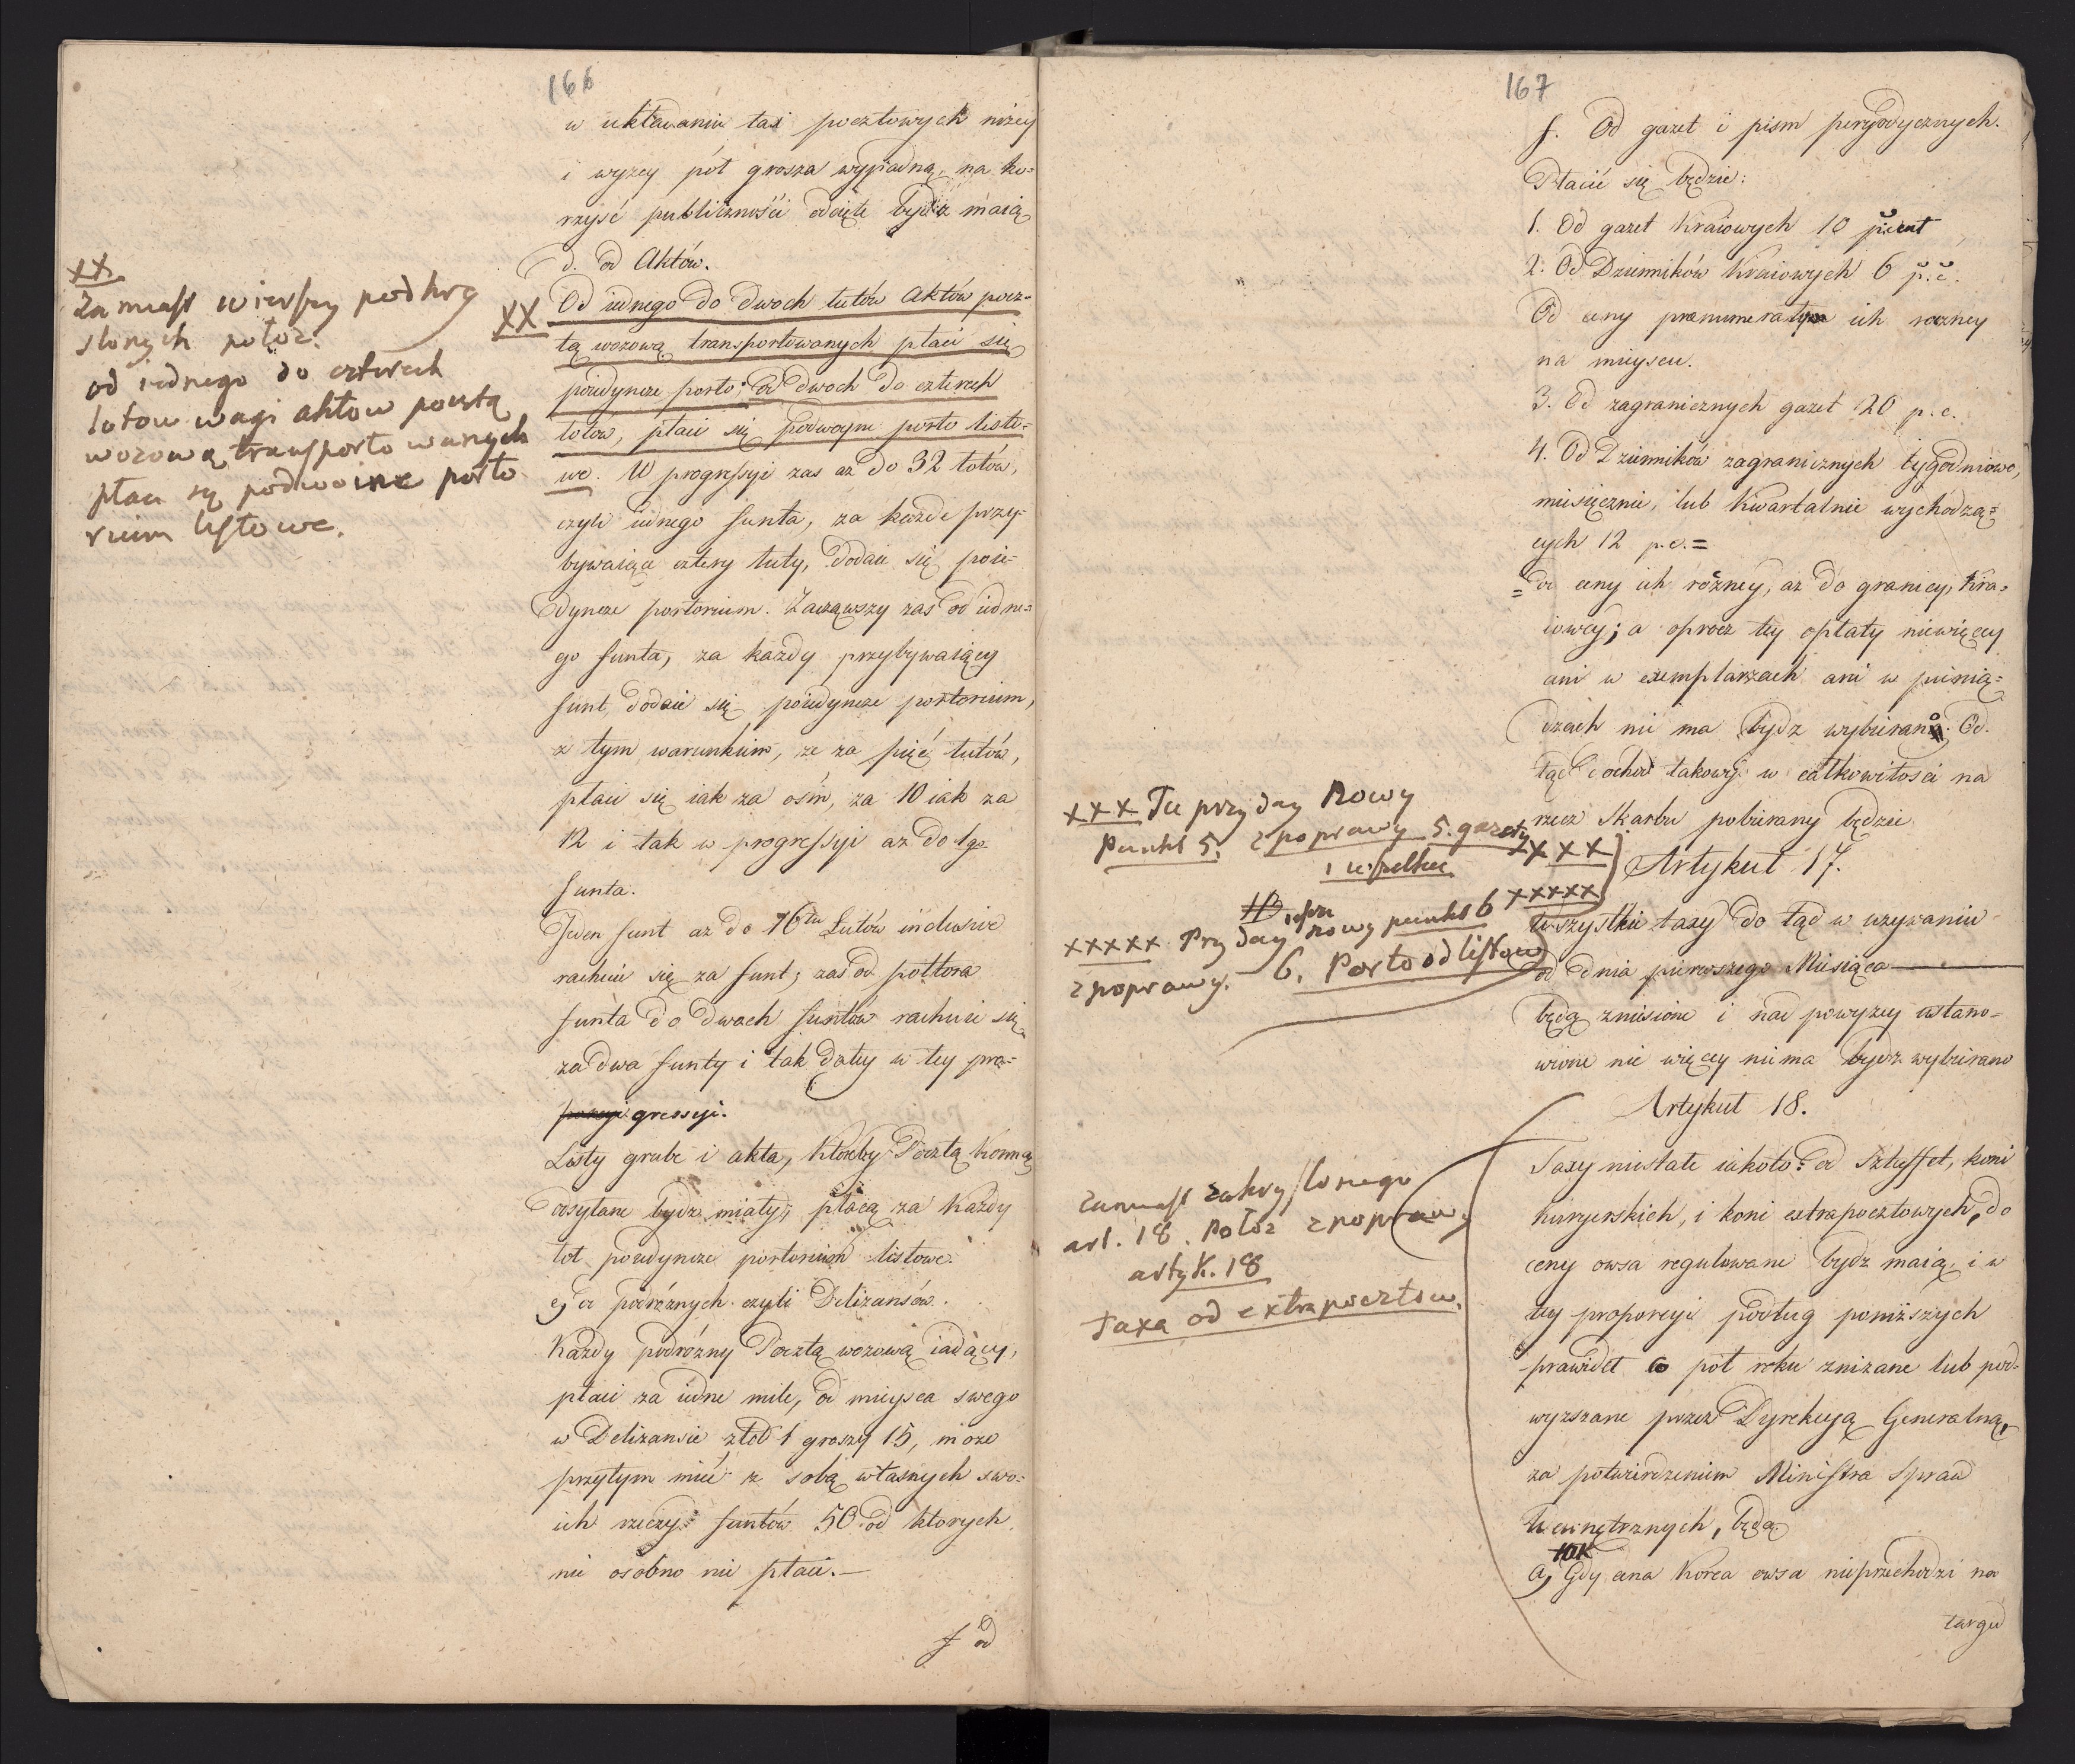 166
w układaniu tax pocztowych niżey
i wyżey pół grosza wypadną, na ko-
rzyść publiczności odcięte bydź maią
d. od Aktów.
XX Od iednego do dwoch łutów Aktów pocz-
tą wozową transportowanych płaci się
poiedyncze porto; od dwoch do czterech
łotów, płaci się podwoyne porto listo-
we. W progressyi zas aż do 32 łotów,
czyli iednego funta, za każde przy-
bywaiące cztery łuty, dodaie się poie-
dyncze portorium. Zacząwszy zas od iedne-
go funta, za każdy przybywaiący
funt, dodaie się poiedyncze portorium,
z tym warunkiem, że za pięć łutów,
płaci się iak za ośm, za 10 iak za
12 i tak w progressyi aż do 1go
funta.
Jeden funt aż do 16tu Łutów inclusive
rachuie się za funt; zas od półtora
funta do dwoch funtów rachuie się
za dwa funty i tak daley w tey pro-
gressyi.
Listy grube i akta, któreby Pocztą konną
odsyłane bydź miały, płacą za każdy
łot poiedyncze portorium listowe.
e, od podróżnych czyli Deliżansów.
Każdy podróżny Pocztą wozową iadący,
płaci za iedne mile, od mieysca swego
w Deliżansie złoť 1 groszy 15, może
przytym mieć z sobą własnych swo-
ich rzeczy funtów 50 od ktorych
nic osobno nie płaci.—
f od
XX
Zamiast wierszy podkry
slonych połoz.
od iednego do czterech
lotow wagi aktow pocztą
wozową transportowanych
płaci się podwoine porto
rium listowe.
167
f. Od gazet i pism peryodycznych.
Płacić się będzie:
1. Od gazet kraiowych 10 pCent
2. Od Dzienników Kraiowych 6 p.c.
Od ceny prenumeraty ich roczney
na mieyscu.
3. Od zagranicznych gazet 20 p.c.
4. Od Dzienników zagranicznych tygodniowo,
miesięcznie, lub kwartalnie wychodzą-
cych 12 p.c.=
= Od ceny ich rożney, aż do granicy, Kra-
iowey; a oprocz tey opłaty niewięcey
ani w exemplarzach ani w pienią-
dzach nie ma bydz wybierano. Od-
tąd dochod takowy w całkowitosci na
rzecz Skarbu pobierany będzie.
XXX
Artykuł 17.
XXXXX
Wszystkie taxy do tąd w używaniu
od dnia pierwszego Miesiąca ———
będą zniesione i nad powyżey ustano-
wione nic więcey niema bydz wybierano
Artykuł 18.
Taxy niestałe iakoto: od Sztaffet, koni
kuryerskich, i koni extrapocztowych, do
ceny owsa regulowane bydź maią, i w
tey proporcyi podług poniższych
prawideł co pół roku zniżane lub pod-
wyższane przez Dyrekcyą Generalną,
za potwierdzeniem Ministra Spraw
Wewnętrznych, będą.
iak
a, Gdy cena korca owsa nieprzechodzi na
targu
XXX Tu przyday Nowy
Punkt 5. z poprawy 5. gazety
i wszelkie
XXXXX Przyday nowy punkt 6
z poprawy. 6. Porto od listow
Zamiast zakryslonego
art. 18. Połoz z poprawy
artyk. 18
Taxa od extrapocztow.